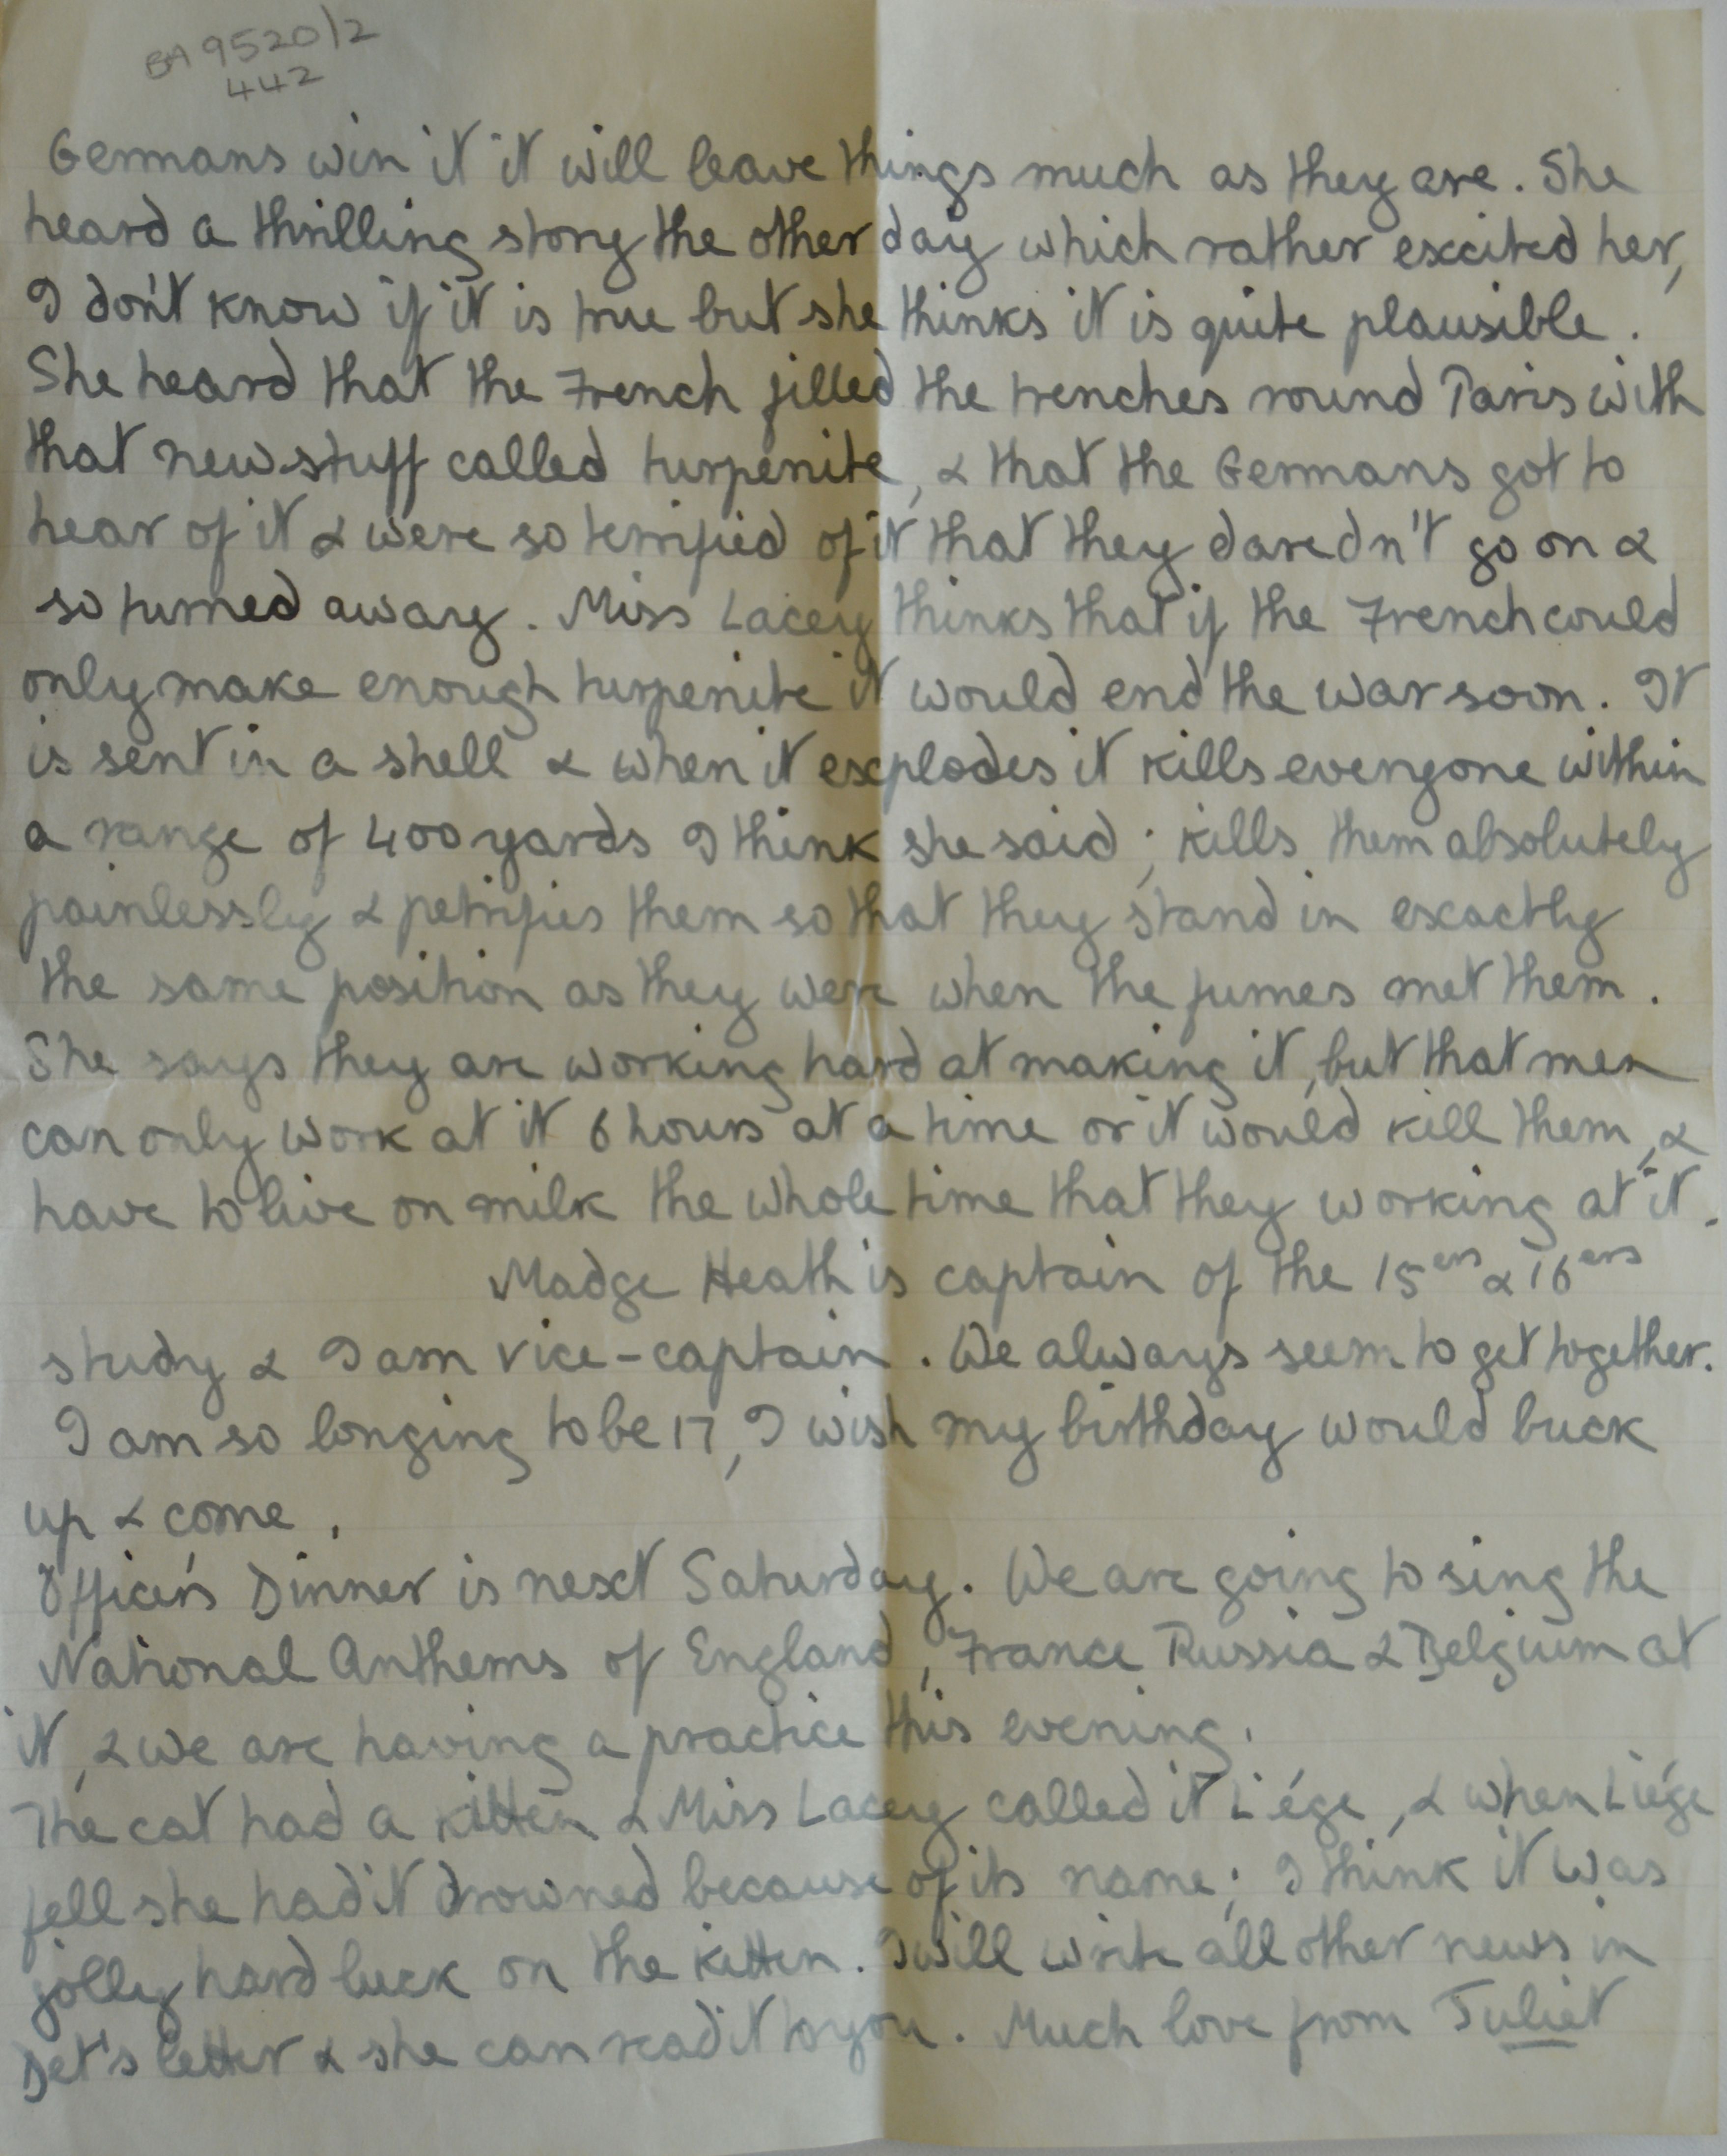 BA 9520/2
442
Germans win it it will leave things much as they are. She
heard a thrilling story the other day which rather excited her,
I don't know if it is true but she thinks it is quite plausible.
She heard that the French filled the trenches round Paris with
that new stuff called turpenite, & that the Germans got to
hear of it & were so terrified of it that they daredn't go on &
so turned away. Miss Lacey thinks that if the French could
only make enough turpenite it would end the war soon. It
is sent in a shell & when it explodes it kills everyone within
a range of 400 yards I think she said; kills them absolutely
painlessly & petrifies them so that they stand in exactly
the same position as they were when the fumes met them.
She says they are working hard at making it, but that men
can only work at it 6 hours at a time or it would kill them, &
have to live on milk the whole time that they working at it.
Madge Heath is captain of the 15ers & 16ers
study & I am vice-captain. We always seem to get together.
I am so longing to be 17, I wish my birthday would buck
up & come.
Officer's Dinner is next Saturday. We are going to sing the
National Anthems of England, France Russia & Belgium at
it, & we are having a practice this evening.
The cat had a kitten & Miss Lacey called it Liége, & when Liége
fell she had it drowned because of its name; I think it was
jolly hard luck on the kitten. I will write all other news in
Det's letter & she can read it to you. Much love from Juliet